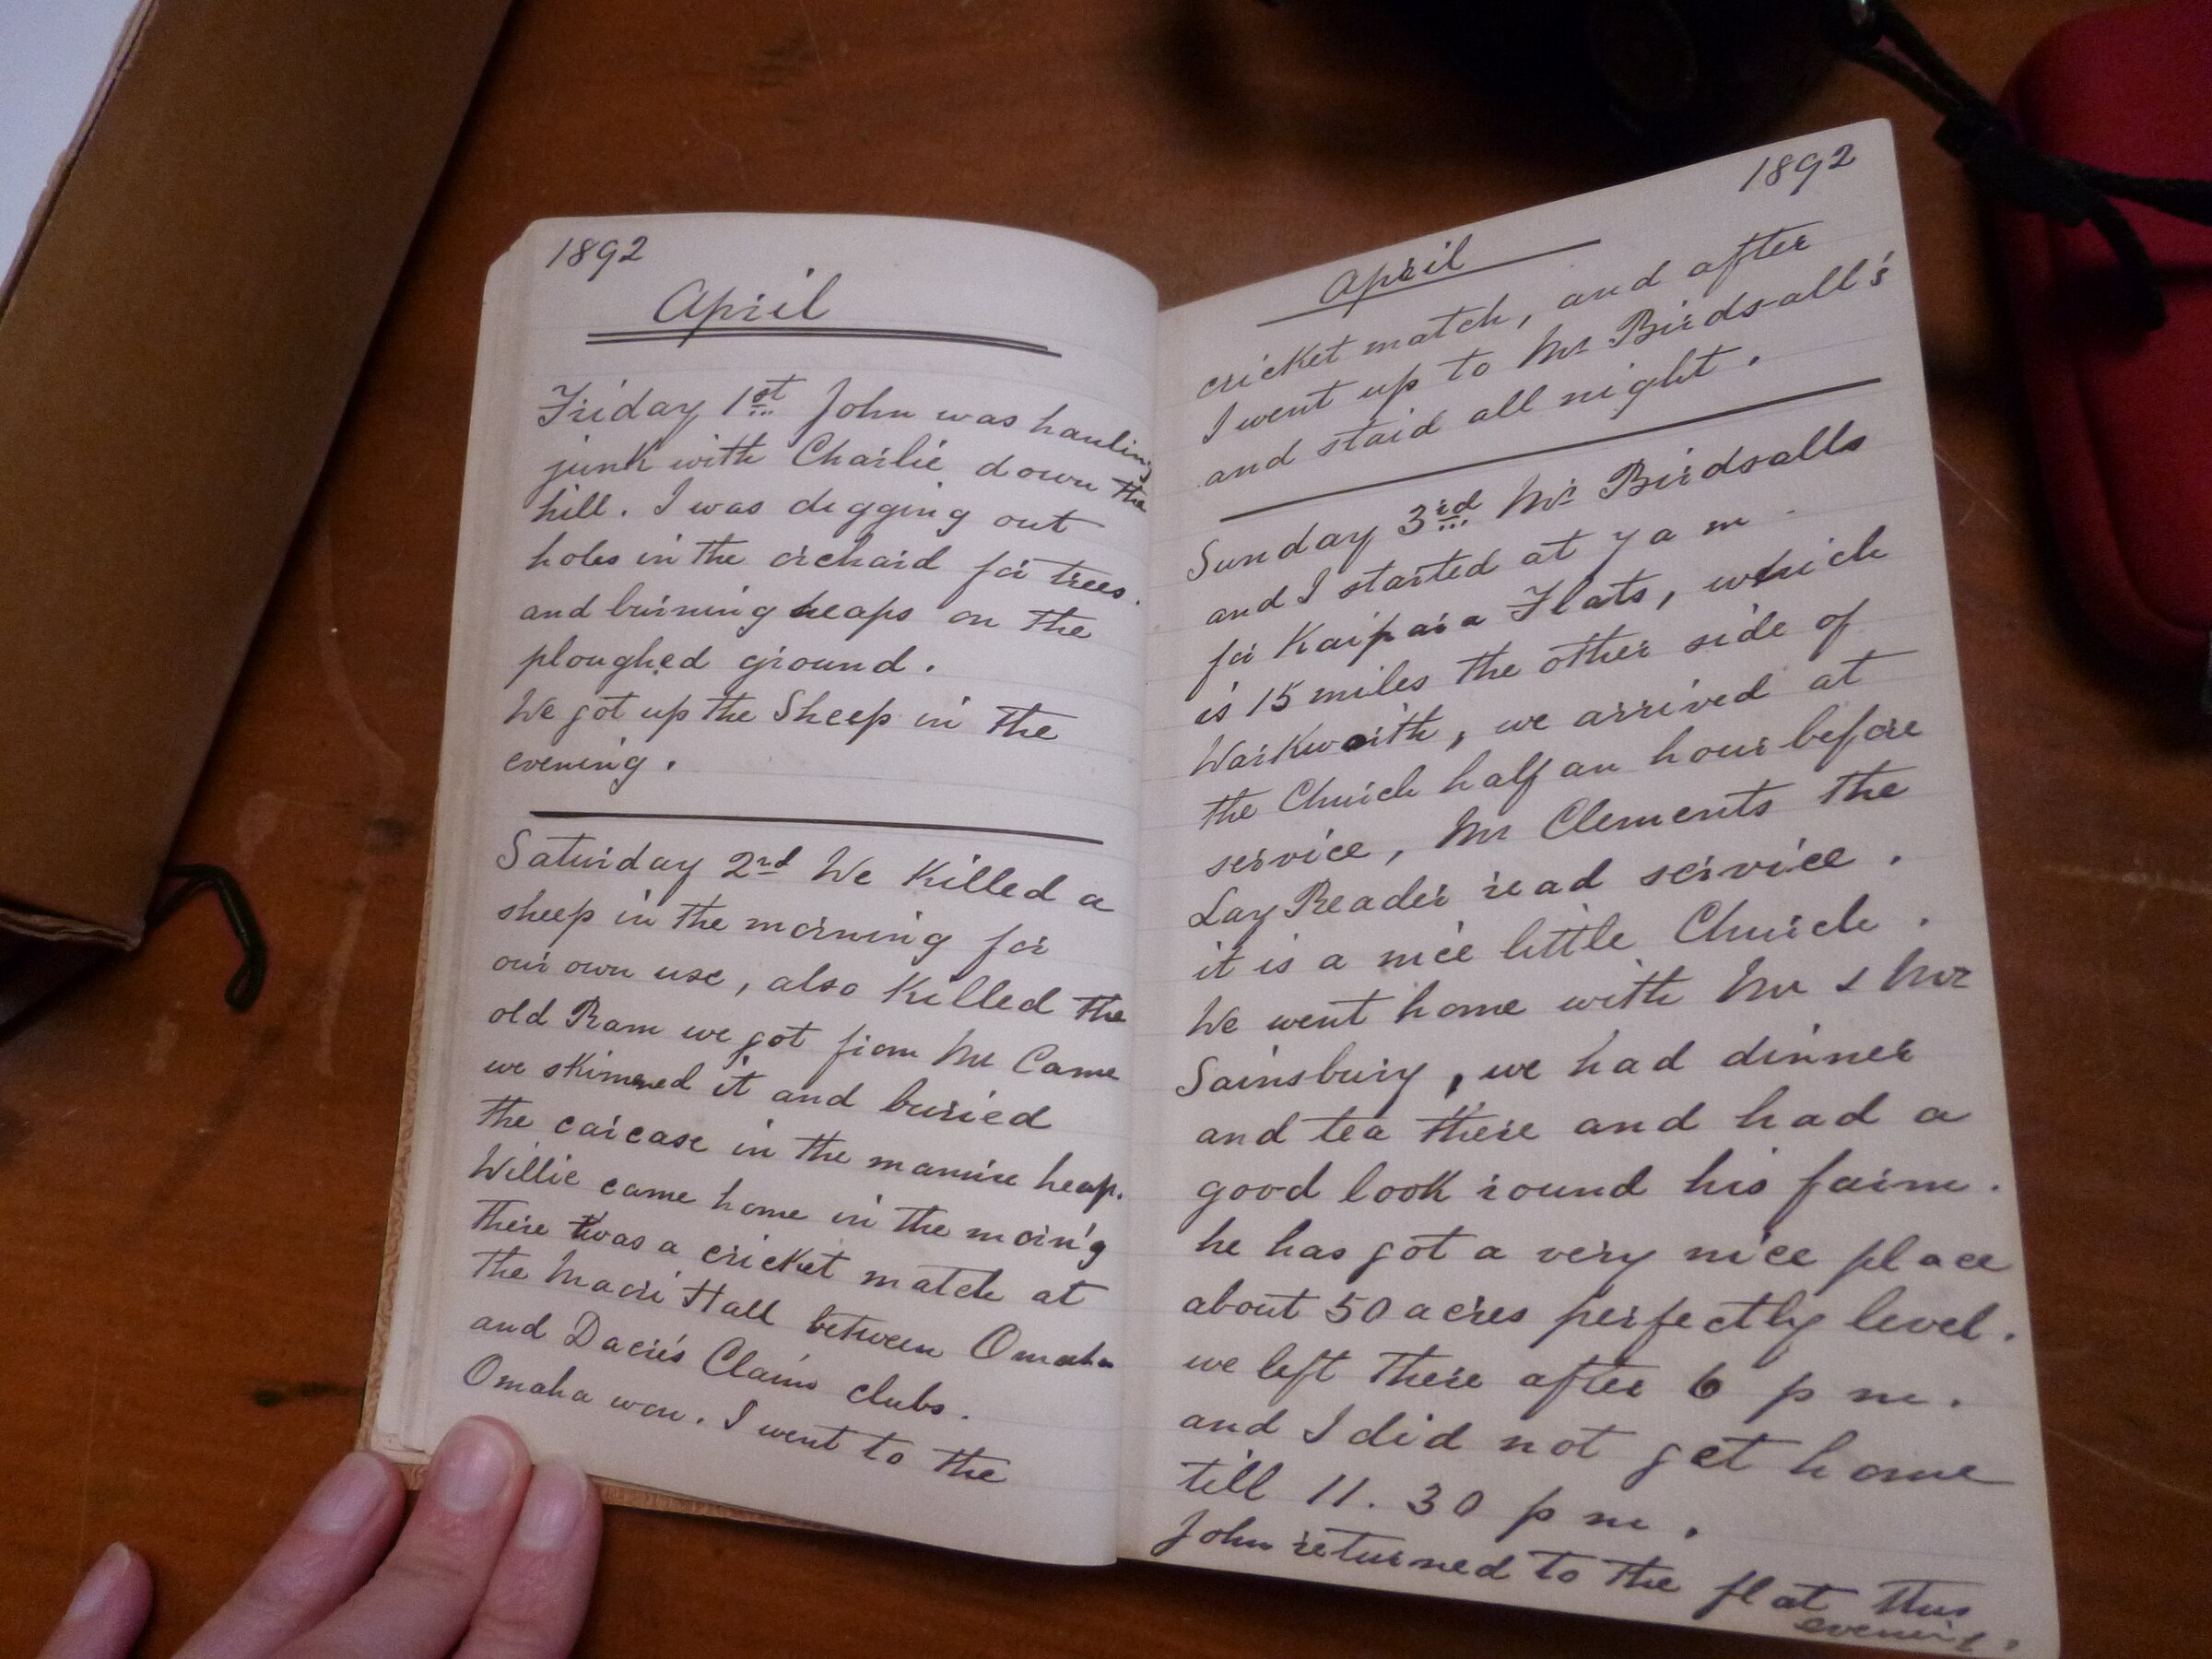 1892
April
Friday 1st John was hauling
junk with Charlie down the
hill. I was digging out
holes in the orchard for trees.
and burning heaps on the
ploughed ground.
We got up the Sheep in the
evening.
Saturday 2nd We Killed a
sheep in the morning for
our own use, also Killed the
old Ram we got from Mr Came
we skinned it and buried
the carcase in the manure heap.
Willie came home in the morn'g
there was a cricket match at
the Maori Hall between Omaha
and Dacre's Claim clubs.
Omaha won. I went to the
1892
April
cricket match, and after
I went up to Mr Birdsall's
and staid all night.
Sunday 3rd Mr Birdsalls
and I started at 7 a m
for Kaipara Flats, which
is 15 miles the other side of
Warkworth, we arrived at
the Church half an hour before
service, Mr Clements the
Lay Reader read service.
it is a nice little Church.
We went home with Mr & Mrs
Sainsbury, we had dinner
and tea there and had a
good look round his farm.
he has got a very nice place
about 50 acres perfectly level.
we left there after 6 p m.
and I did not get home
till 11.30 p m.
John returned to the flat this
evening.